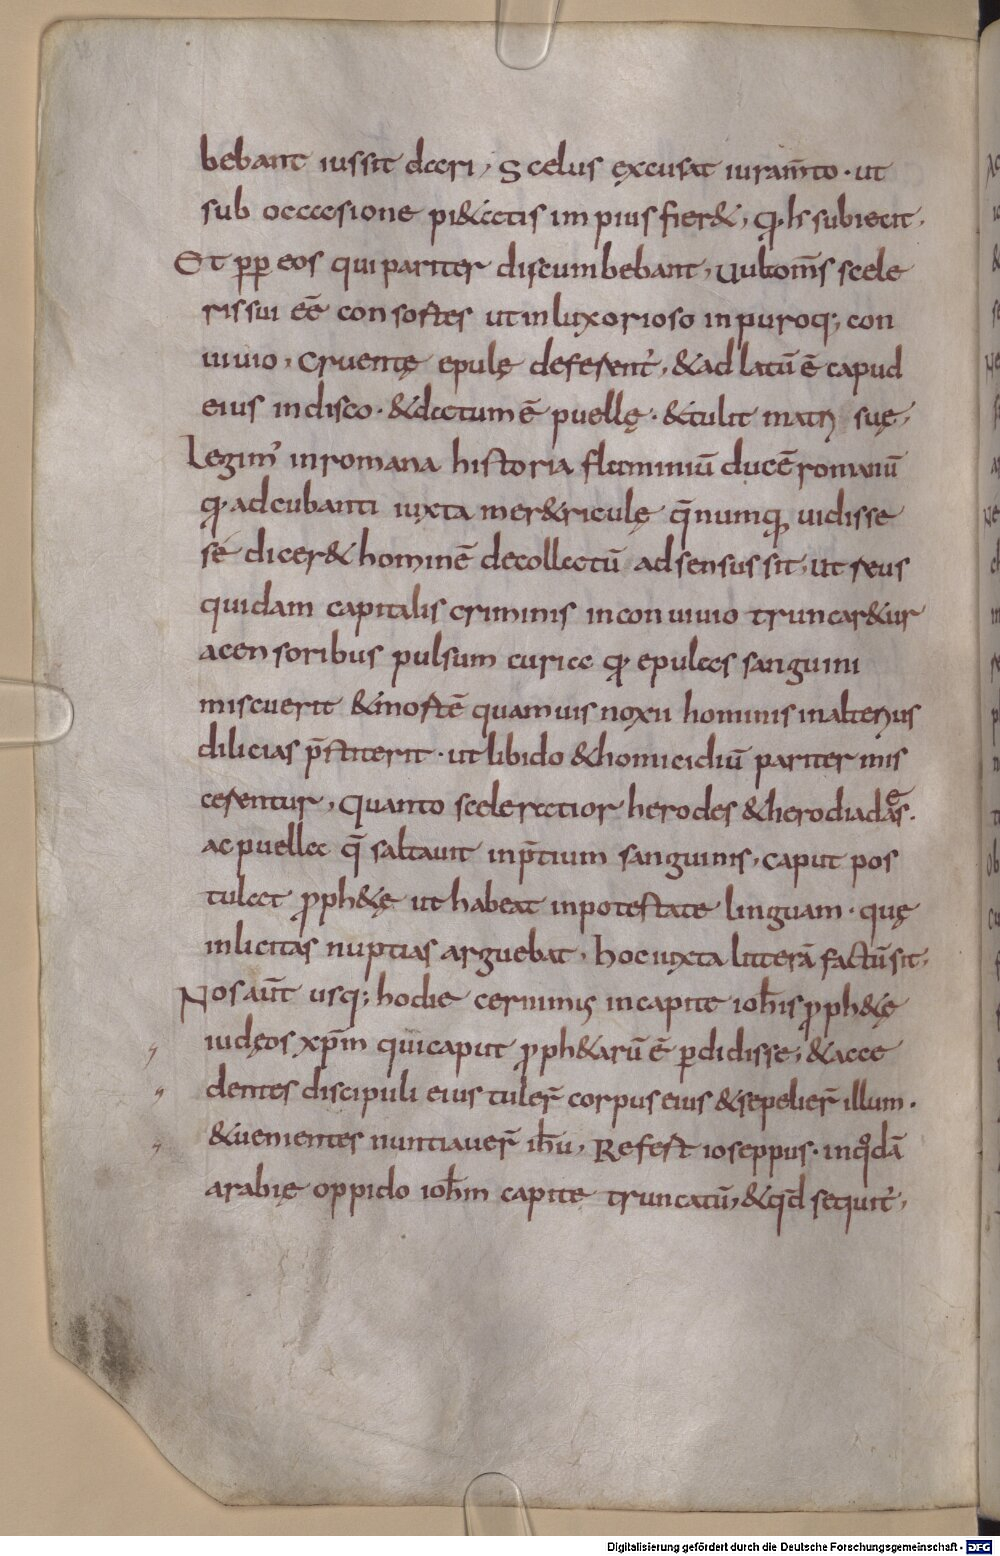 bebant iussit dari, Scelus excusat iuram̄to · ut
sub occasione pi&atis impius fier&, q̣· h̄ subiecit,
Et p̱p̱ eos qui pariter discumbebant, uult om̄s scele
ris sui eē consortes ut in luxorioso inpuroq; con
uiuio, Cruentę epulę deferent᷑, & adlatū ē capud
eius in disco · & datum ē puellę · & tulit matri suę,
Legim᷒ in romana historia flaminiū ducē romanū
q̣· adcubanti iuxta mer&riculę q̄ numquā uidisse
se dicer& hominē decollatū adsensus sit, ut reus
quidam capitalis criminis in conuiuio truncar&ur
a censoribus pulsum curia q̣· epulas sanguini
miscuerit & mortē quamuis noxii hominis in alterius
dilicias p̄stiterit · ut libido & homicidiū pariter mis
cerentur, Quanto sceleratior herodes & herodiades ·
ac puella q̄ saltauit in p̄tium sanguinis, caput pos
tulat p̱ph&ę ut habeat in potestate linguam · quę
inlicitas nuptias arguebat, hoc iuxta litterā factū sit,
Nos aūt usq; hodie cernim᷒ in capite ioh̄is p̱ph&ę
iudęos xp̄m qui caput p̱ph&arū ē p̱didisse, & acce
dentes discipuli eius tuler̄ corpus eius & sepelier̄ illum ·
& uenientes nuntiauer̄ ih̄u, Refert ioseppus · in quodā
arabię oppido ioh̄m capite truncatū, & qd̄ sequit᷑,
Digitalisierung gefördert durch die Deutsche Forschungsgemeinschaft - DFG